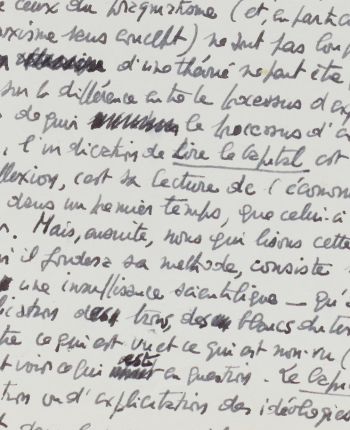 ceux du pragmatisme (et, en partic
sans concept) ne sont pas
d'une théorie ne peut être
sur la différence entre le processus d'ex
de quoi le processus d'
, l'indication de Lire le Capital est
flexion, c'est sa lecture de l'économ
dans un premier temps, que celui-ci
. Mais, ensuite, nous qui lisons cette
il fondera sa méthode, consiste
une insuffisance scientifique — qu'
lication des trous, des blancs du te
tre ce qui est vu et ce qui est non-vu (
t voir celui est en question. Le Cap
tion ou d'explicitation des idéologie